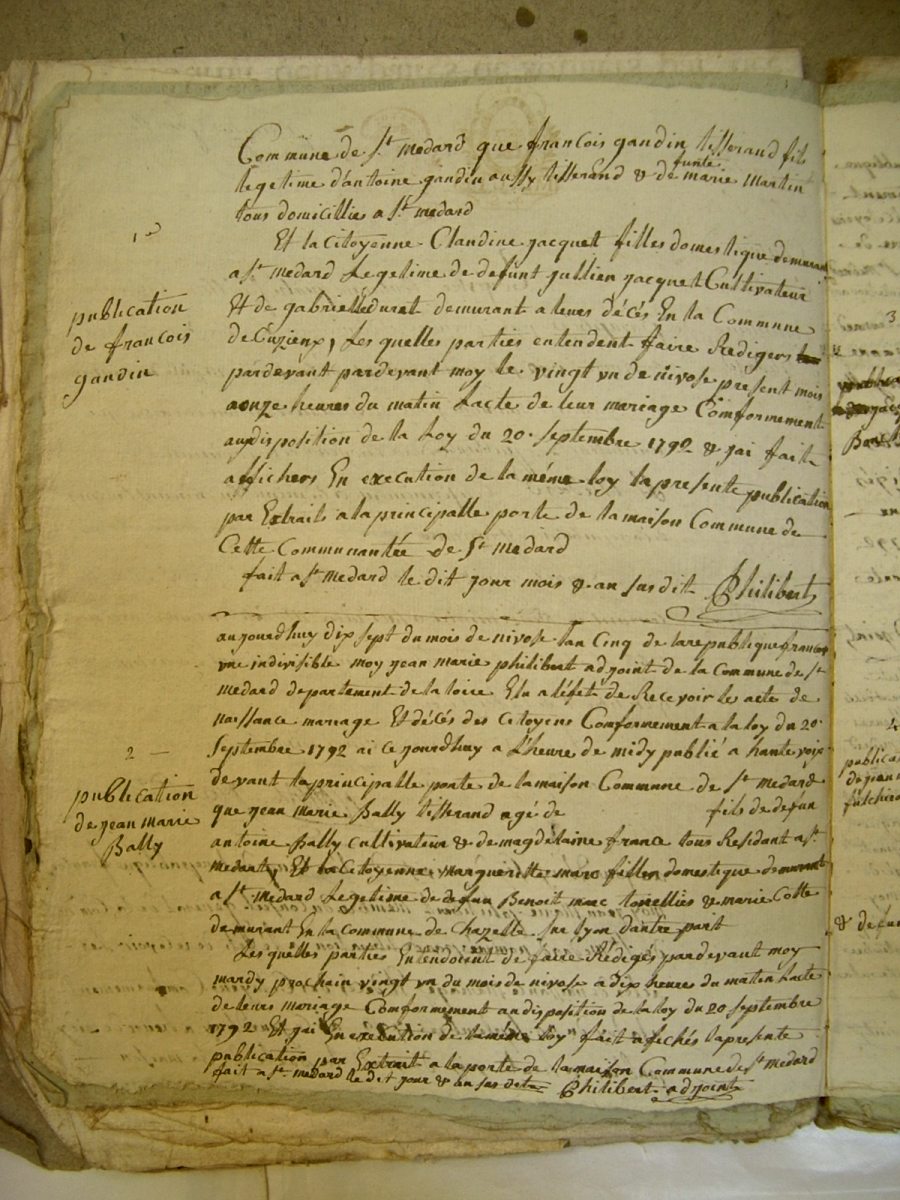 Commune de St medard que francois gandin tisserand fils
legetime d'antoine gandin aussy tisserand & de funte marie Martin
tous domicillies a St medard
1er
publication
de francois
gandin
Et la Citoyenne Claudine jacquet filles domestique demurant
a St medard Legetime de defunt jullien jacquet Cultivateur
Et de gabrielle duret demurant a leurs décés En la Commune
de Cuzieux, Les quelles parties entendent faire Redigers
pardevant pardevant moy le vingt un de nivose present mois
a onze heures du matin Lacte de leur mariage Comformement
aux disposition de la Loy du 20 septembre 1792 & jai fait
affichers En execution de la méme loy la presente publication
par Extraits a la principalle porte de la maison Commune de
Cette Communautée de St medard
fait a St medard le dit jour mois & an susdit Philibert
2
publication
de jean marie
Bally
aujourdhuy dix sept du mois de nivose lan Cinq de la republique francoise
une indivisible moy jean marie philibert adjoint de la Commune de St
medard departement de la loire Elu a léfet de Recevoir les actes de
naissance mariage Et décés des Citoyens Comformement a la loy du 20
septembre 1792 ai ce jourdhuy a Lheure de midy publié a haute voix
devant la principalle porte de la maison Commune de St medard
que jean marie Bally tisserand agé de fils de defun
antoine Bally cultivateur & de magdelaine france tous Resident a St
medard, Et la Citoyenne margueritte marc filles domestique demurant
a St medard Legetime de defun Benoit marc tonellies & marie Cotte
demurant En la commune de Chazelle sur lyon dautre part
Les quelles parties Entendoient de faire Rédigés pardevant moy
mardy prochain vingt un du mois de nivose a dix heures du matin Lacte
de leurs mariage Comformement au disposition de la loy du 20 septembre
1792 Et jai En execution de la méme loy fait afichés la presente
publication par Extrait a la porte de la maison Commune de St medard
fait a St medard le dit jour & an sus dit Philibert adjoint
3
4
publica
de jean
fulchiro
& defun